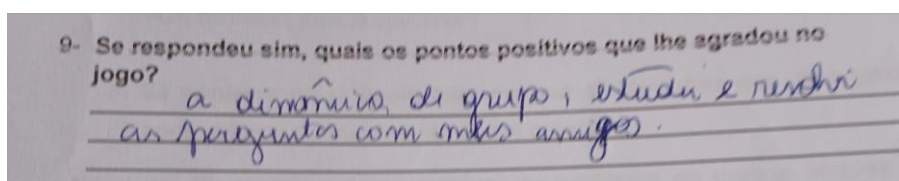 9- Se respondeu sim, quais os pontos positivos que lhe agradou no
jogo?
a dinâmica, de grupo, estudar e resolver
as perguntas com meus amigos.